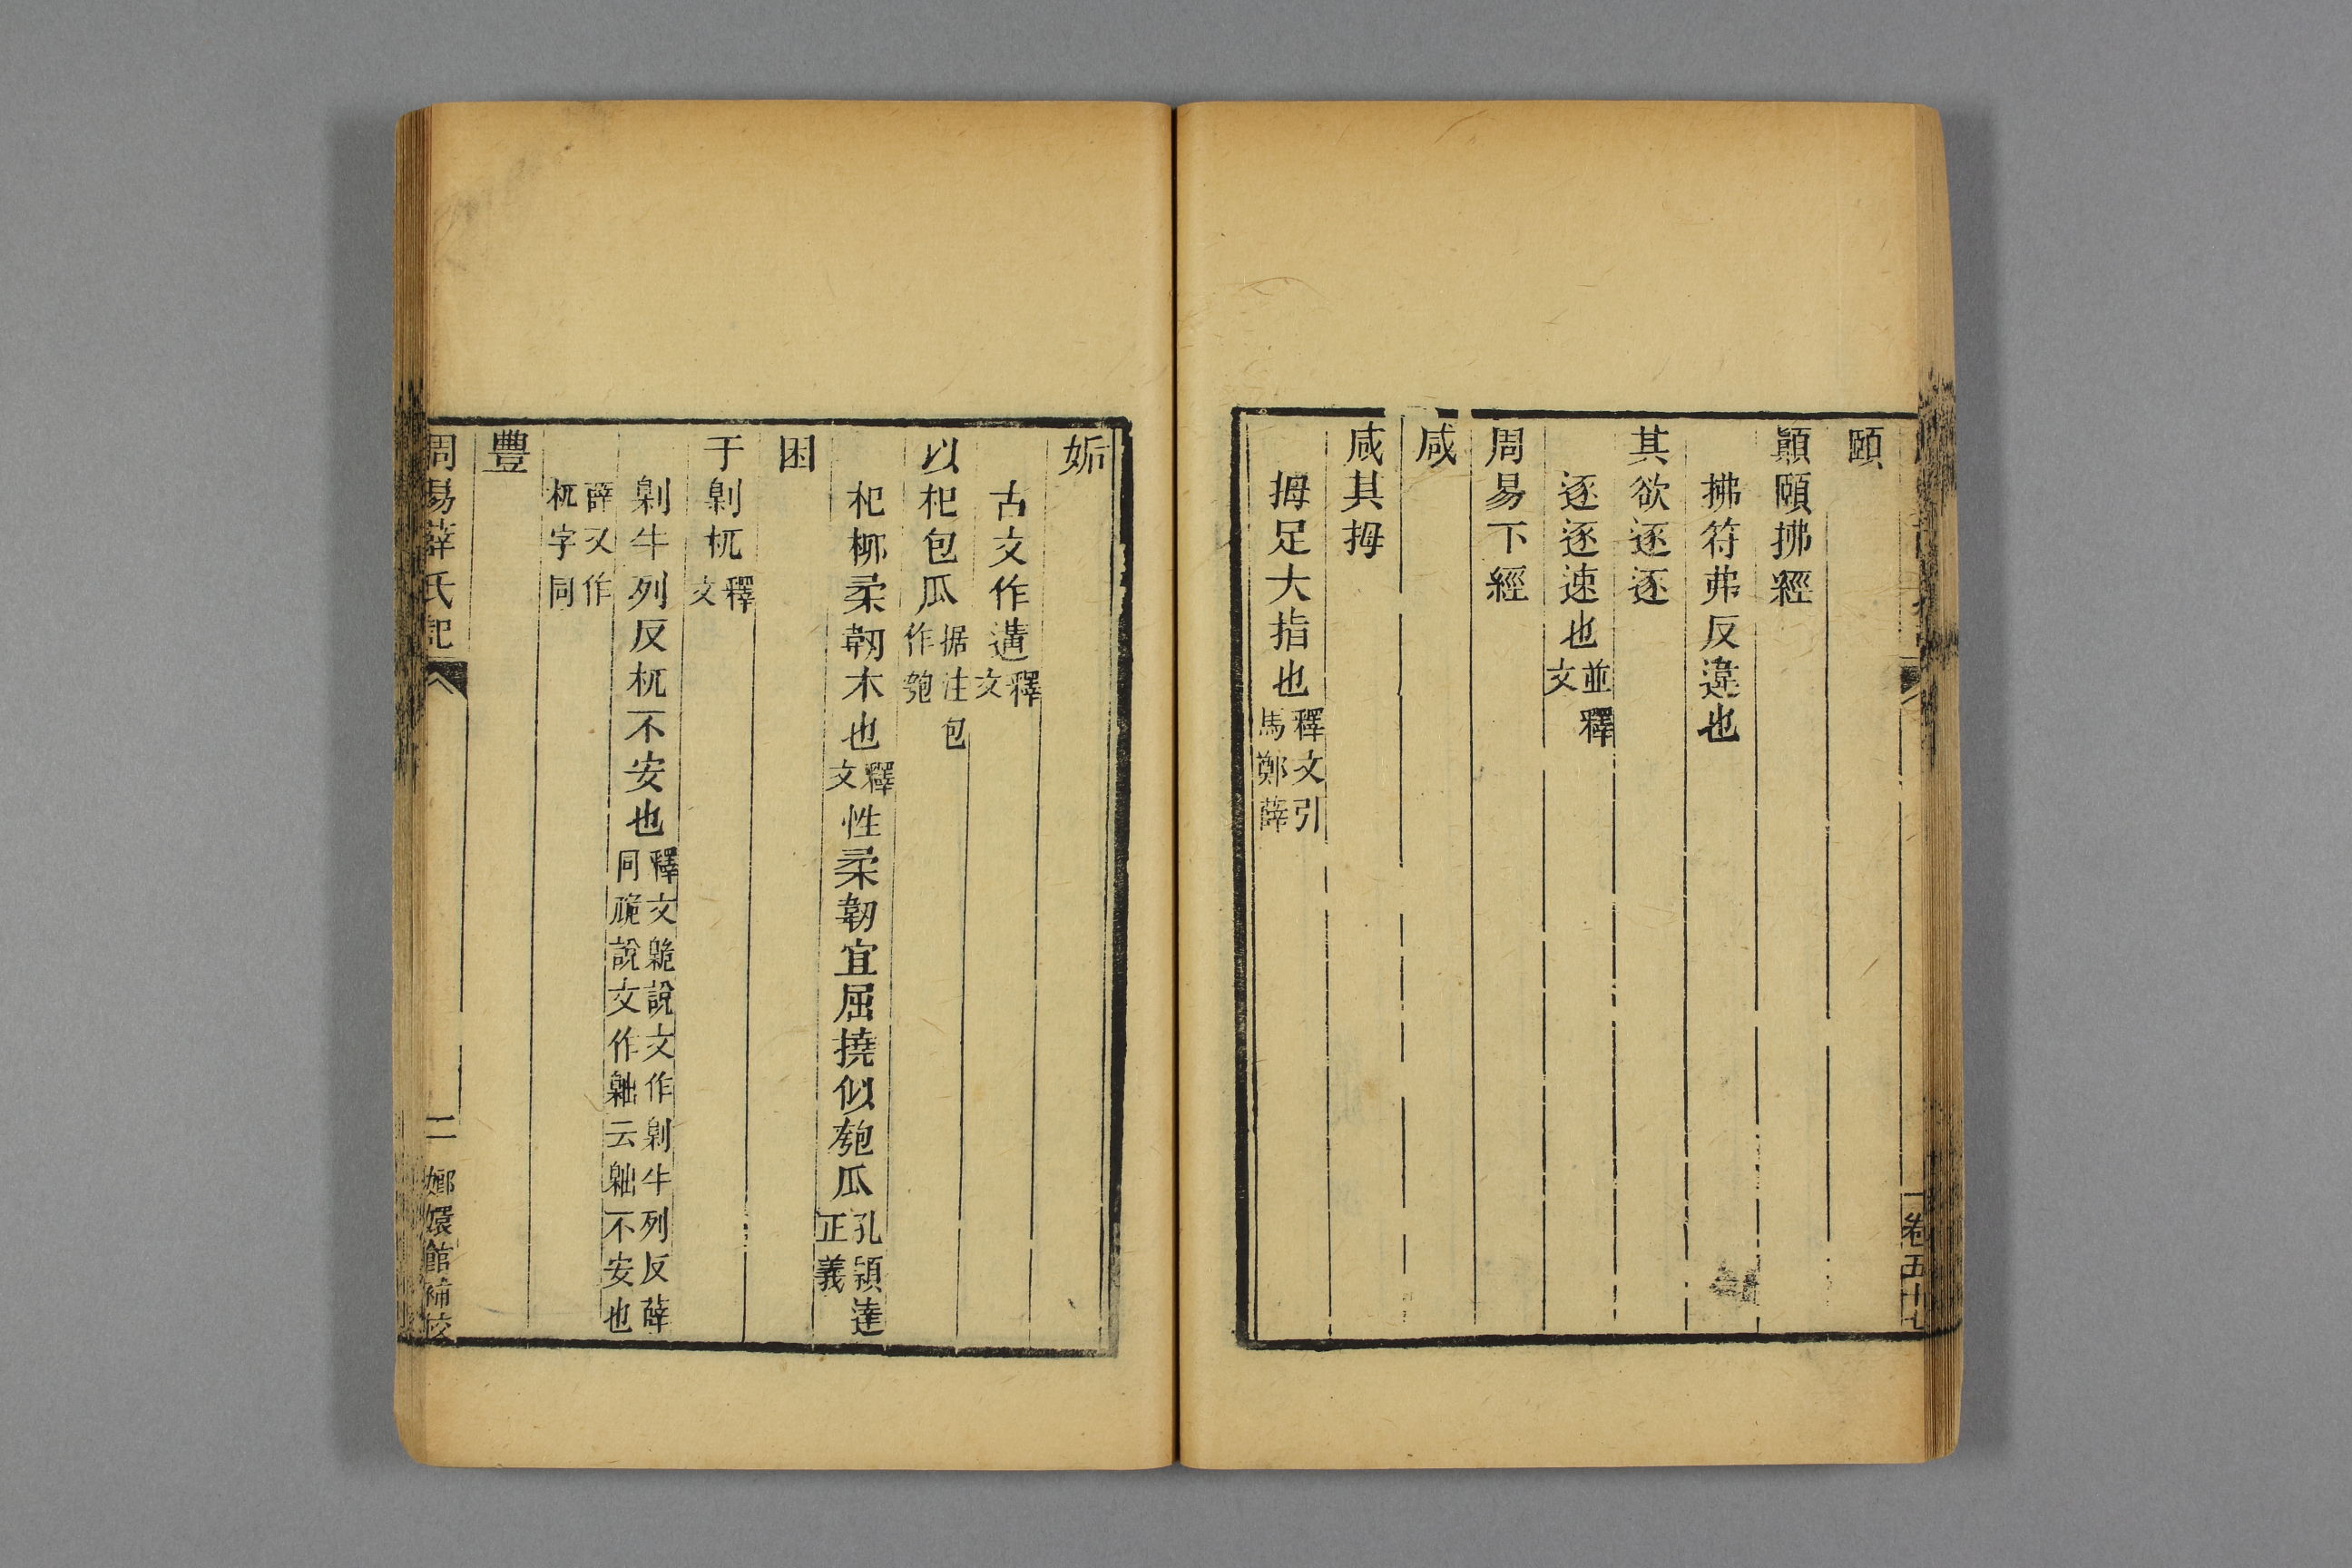 頤
顚頤拂經
拂符弗反違也
其欲逐逐
逐逐速也並釋文
周易下經
咸
咸其拇
拇足大指也釋文引馬鄭薛
卷五十七
姤
古文作遘釋文
以杞包瓜据注包作匏
杞栁柔韌木也釋文性柔韌宜屈撓似匏瓜孔頴達正義
困
于劓杌釋文
劓牛列反杌不安也釋文臲說文作劓牛列反薛同卼說文作𣃍云𣃍不安也
薛又作杌字同
豐
周易薛氏記
二
嫏嬛館補校